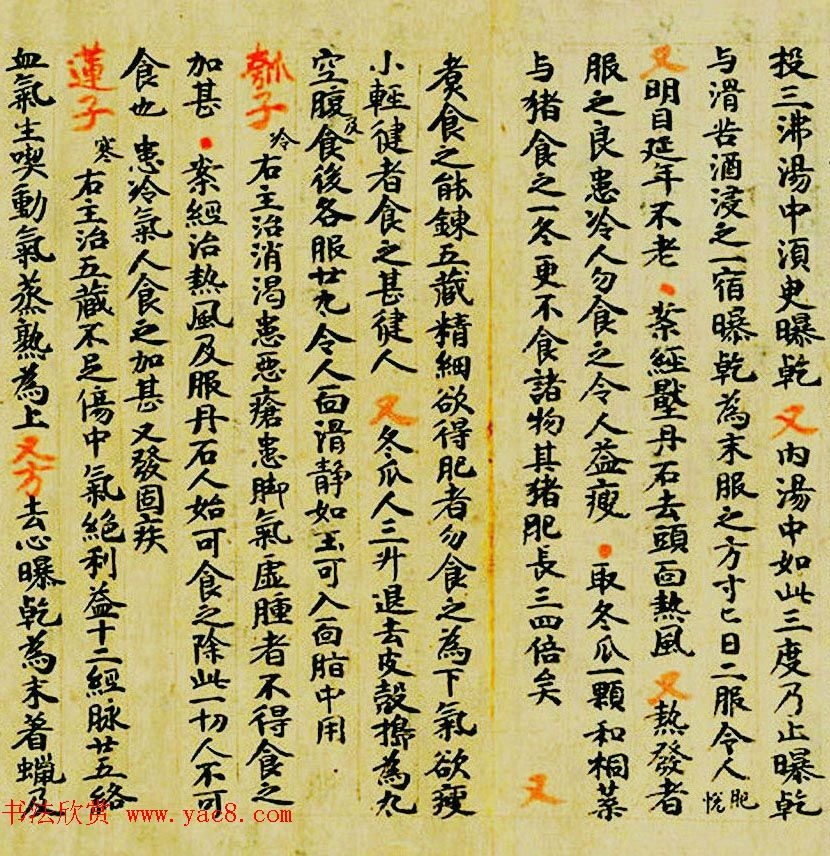 投三沸湯中湏史曝乾 又內湯中如此三度乃止曝乾
与滑苦酒浸之一宿曝乾為末服之方寸匕日二服令人肥悅
又明目延年不老 案經壓丹石去頭面熱風 又熱發者
服之良患冷人勿食之令人益瘦 取冬瓜一顆和桐葉
与猪食之一冬更不食諸物其猪肥長三四倍矣 又
煑食之能錬五藏精細欲得肥者勿食之為下氣欲瘦
小輕健者食之甚健人 又冬瓜人三升退去皮殼擣為丸
空腹及食後各服廿丸令人面滑静如玉可入面脂中用
瓠子 冷 右主治消渴患惡瘡患脚氣虛腫者不得食之
加甚 案經治熱風及服丹石人始可食之除此一切人不可
食也 患冷氣人食之加甚又發固疾
蓮子 寒 右主治五藏不足傷中氣絕利益十二經脉廿五絡
血氣生喫動氣蒸熟為上 又方去心曝乾為末着蠟及
书法欣赏 www.yac8.com